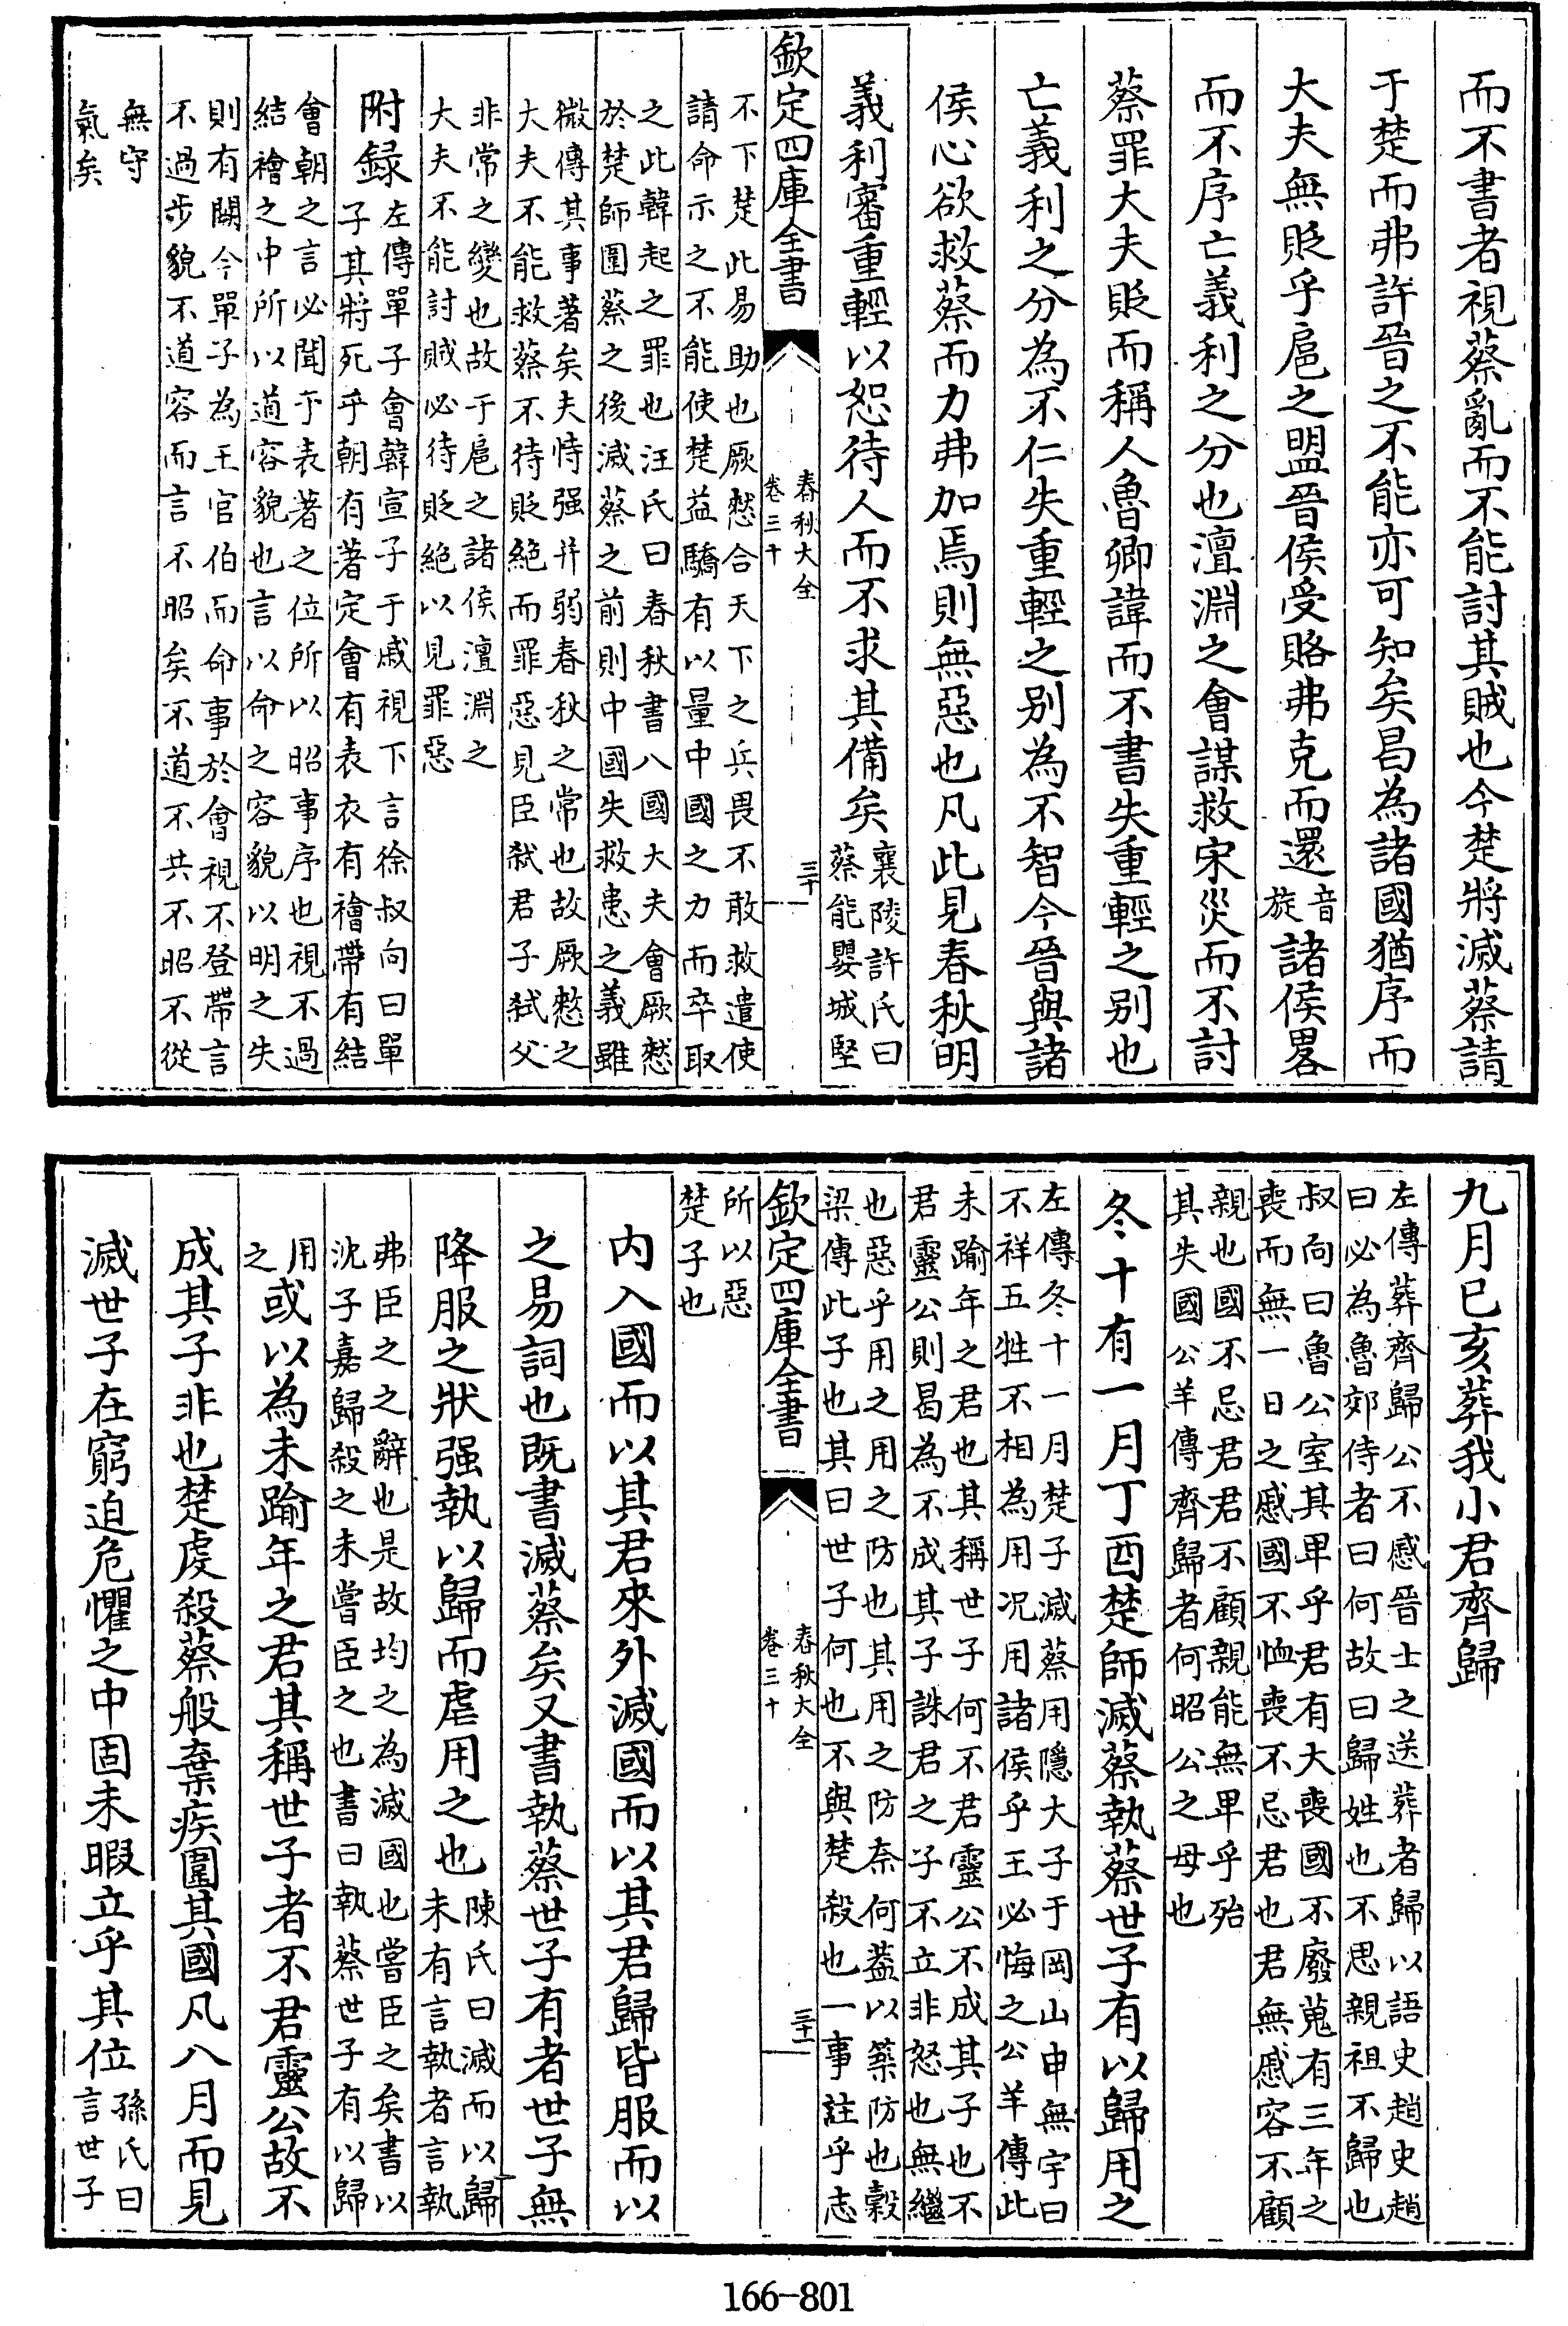 而不書者視蔡亂而不能討其賊也今楚將滅蔡請
于楚而弗許晉之不能亦可知矣曷為諸國猶序而
大夫無貶乎扈之盟晉侯受賂弗克而還音
旋諸侯畧
而不序亡義利之分也澶淵之會謀救宋災而不討
蔡罪大夫貶而稱人魯卿諱而不書失重輕之别也
亡義利之分為不仁失重輕之别為不智今晉與諸
侯心欲救蔡而力弗加焉則無惡也凡此見春秋明
義利審重輕以恕待人而不求其備矣襄陵許氏曰
蔡能嬰城堅
欽定四庫全書
春秋大全
卷三十
三十
不下楚此易助也厥憖合天下之兵畏不敢救遣使
請命示之不能使楚益驕有以量中國之力而卒取
之此韓起之罪也汪氏曰春秋書八國大夫會厥憖
於楚師圍蔡之後滅蔡之前則中國失救患之義雖
微傳其事著矣夫恃强并弱春秋之常也故厥憖之
大夫不能救蔡不待貶絶而罪惡見臣弑君子弑父
非常之變也故于扈之諸侯澶淵之
大夫不能討賊必待貶絶以見罪惡
附録左傳單子會韓宣子于戚視下言徐叔向曰單
子其將死乎朝有著定會有表衣有襘帶有結
會朝之言必聞于表著之位所以昭事序也視不過
結襘之中所以道容貌也言以命之容貌以明之失
則有闕今單子為王官伯而命事於會視不登帶言
不過步貌不道容而言不昭矣不道不共不昭不從
無守
氣矣
九月己亥葬我小君齊歸
左傳葬齊歸公不慼晉士之送葬者歸以語史趙史趙
曰必為魯郊侍者曰何故曰歸姓也不思親祖不歸也
叔向曰魯公室其卑乎君有大喪國不廢蒐有三年之
喪而無一日之慼國不恤喪不忌君也君無慼容不顧
親也國不忌君君不顧親能無卑乎殆
其失國公羊傳齊歸者何昭公之母也
冬十有一月丁酉楚師滅蔡執蔡世子有以歸用之
左傳冬十一月楚子滅蔡用隱大子于岡山申無宇曰
不祥五牲不相為用况用諸侯乎王必悔之公羊傳此
未踰年之君也其稱世子何不君靈公不成其子也不
君靈公則曷為不成其子誅君之子不立非怒也無繼
也惡乎用之用之防也其用之防奈何葢以築防也穀
梁傳此子也其曰世子何也不與楚殺也一事註乎志
欽定四庫全書
春秋大全
卷三十
三十一
所以惡
楚子也
内入國而以其君來外滅國而以其君歸皆服而以
之易詞也既書滅蔡矣又書執蔡世子有者世子無
降服之狀强執以歸而虐用之也陳氏曰滅而以歸
未有言執者言執
弗臣之之辭也是故均之為滅國也嘗臣之矣書以
沈子嘉歸殺之未嘗臣之也書曰執蔡世子有以歸
用
之或以為未踰年之君其稱世子者不君靈公故不
成其子非也楚虔殺蔡般棄疾圍其國凡八月而見
滅世子在窮迫危懼之中固未暇立乎其位孫氏曰
言世子
166-801